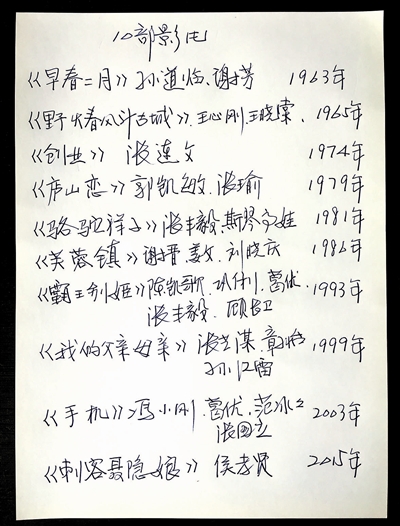 10部影片
《早春二月》孙道临、谢芳 1963年
《野火春风斗古城》.王心刚.王晓棠. 1965年
《创业》 张连文 1974年
《庐山恋》郭凯敏、张瑜 1979年
《骆驼祥子》张丰毅.斯琴高娃 1981年
《芙蓉镇》谢晋.姜文.刘晓庆 1986年
《霸王别姬》陈凯歌.巩俐.葛优. 1993年
张丰毅. 顾长卫
《我的父亲母亲》张艺谋.章子怡 1999年
孙红雷
《手机》冯小刚.葛优.范冰冰 2003年
张国立
《刺客聂隐娘》 侯孝贤 2015年